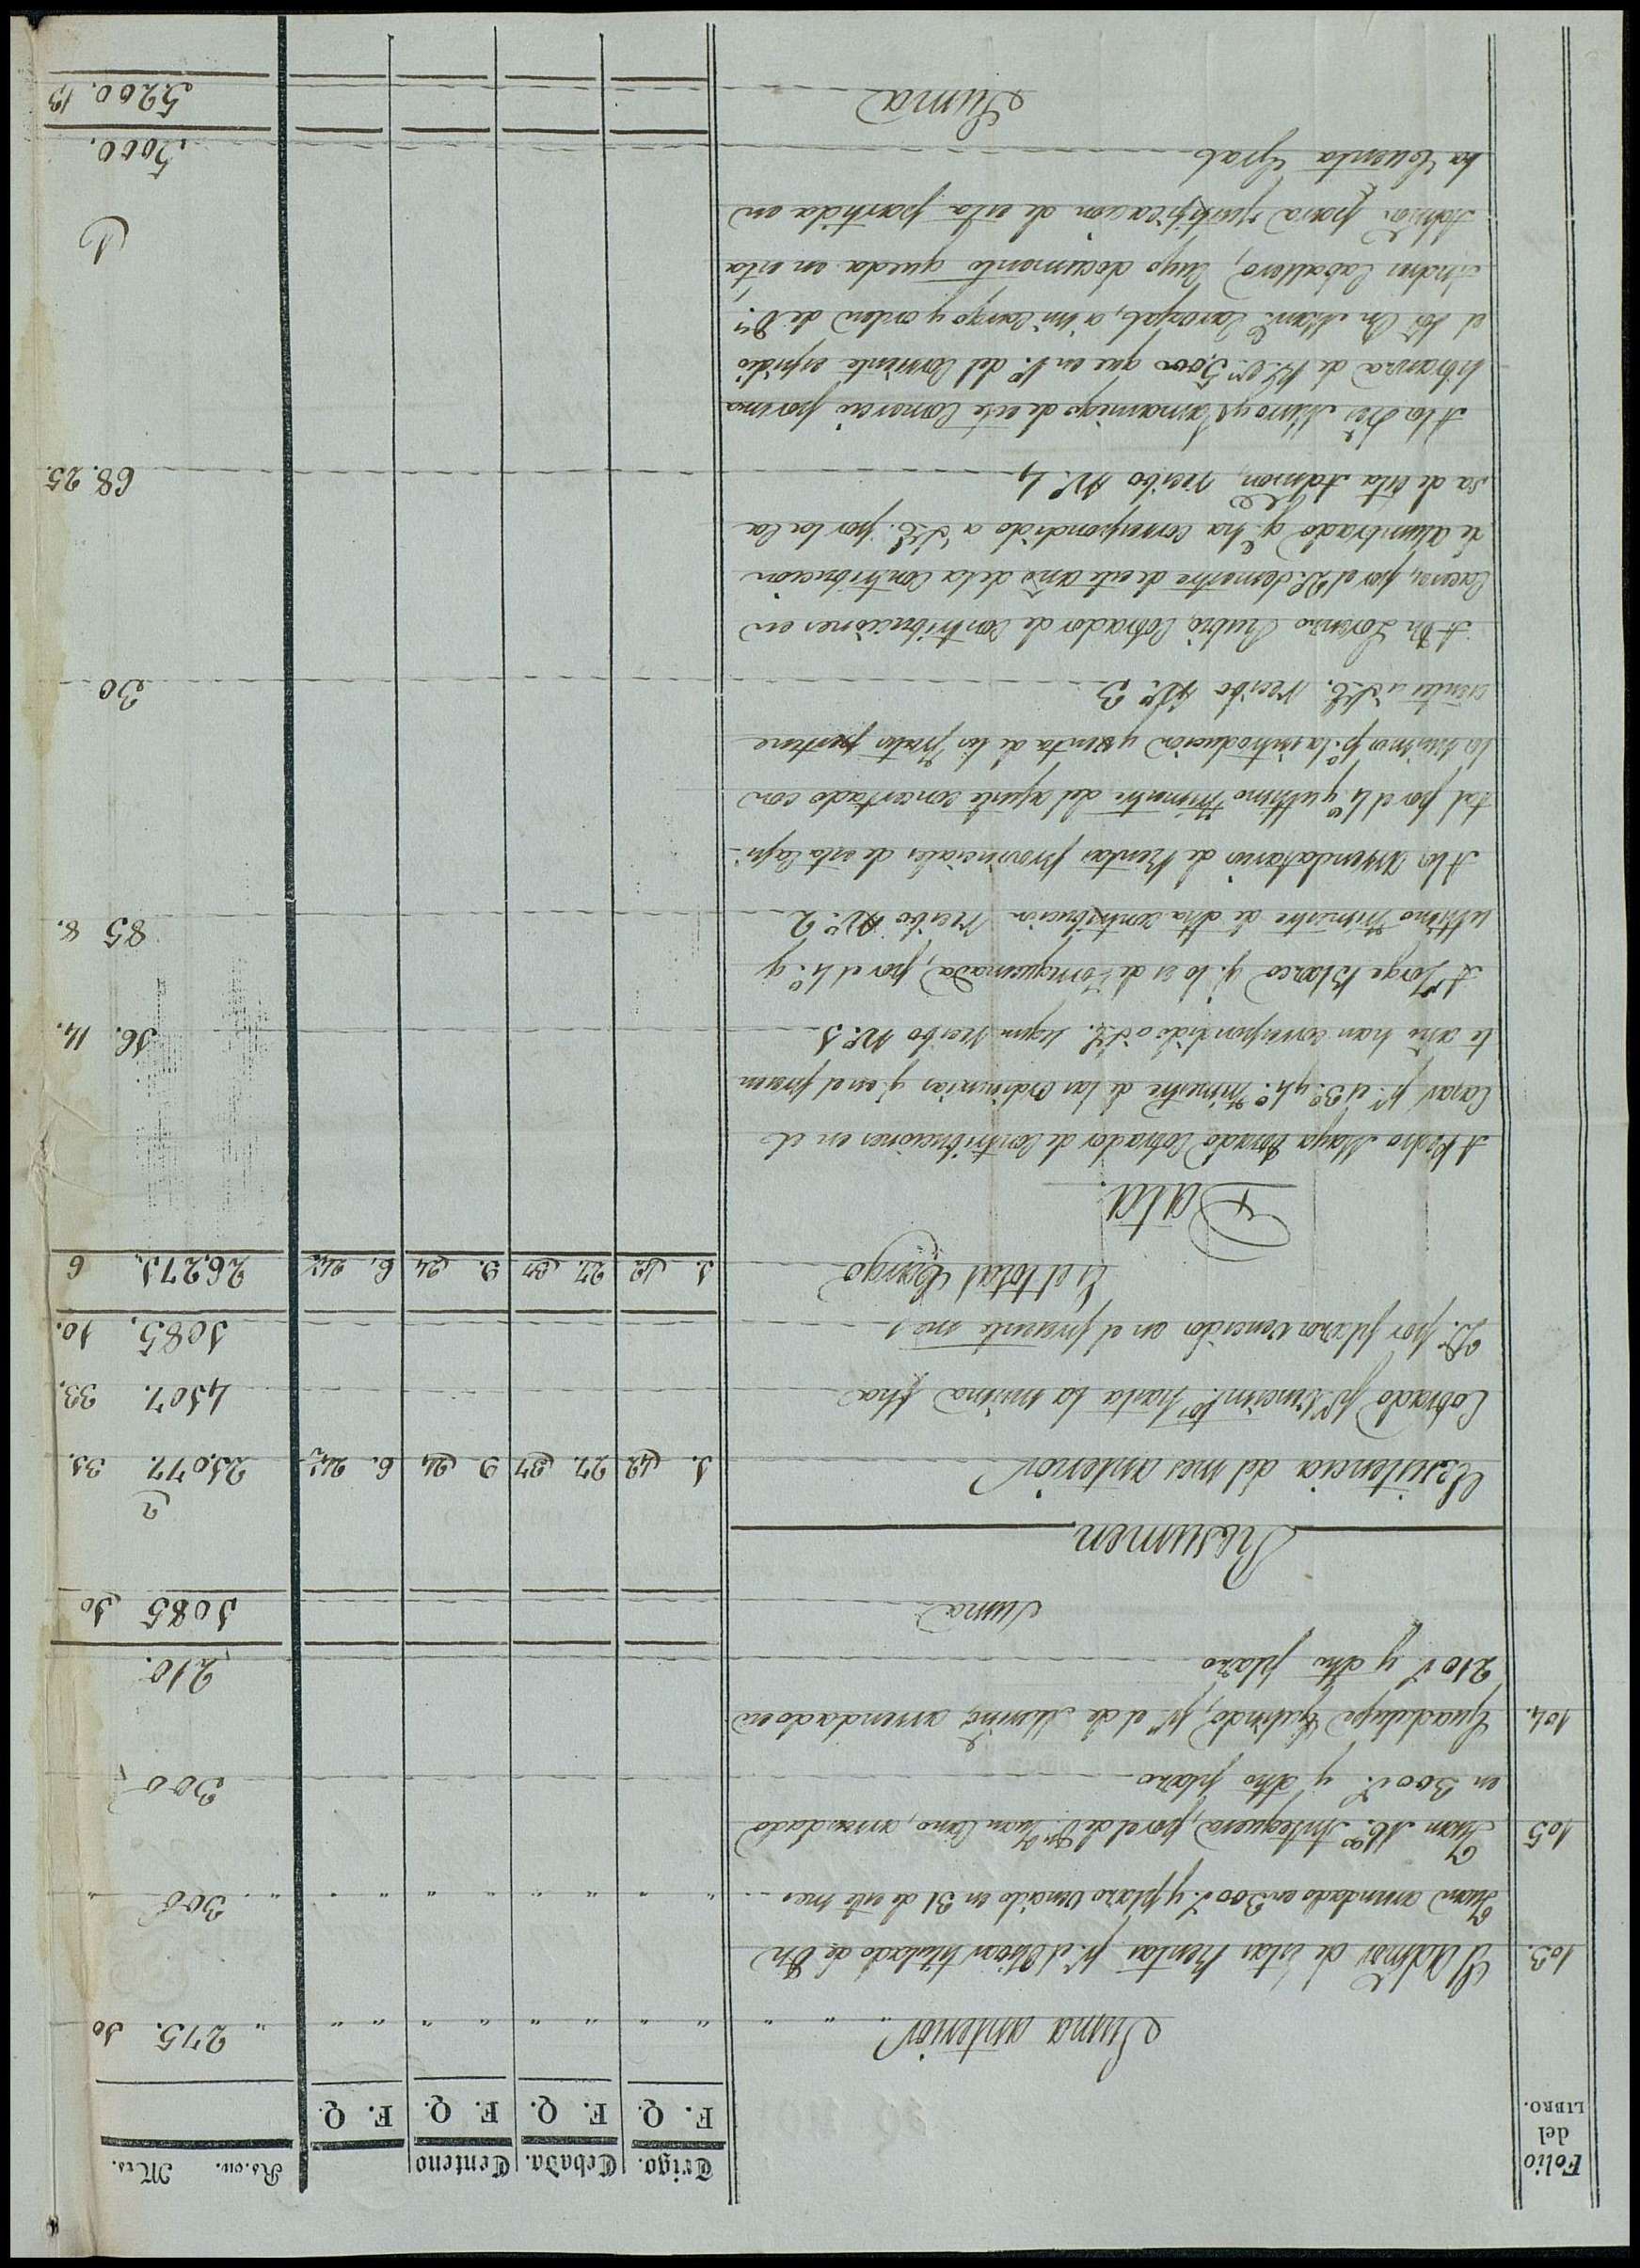 Folio
del
LIBRO.
Trigo. Cebada. Centeno Rs. on. Mrs.
F. Q. F. Q. F. Q. F. Q.
Suma anterior 275. 10
103. El Admor de estas Rentas pr. el Olivar titulado de Dn
Juan arrendado en 300 r. y plazo vencido en 31 de este mes 300
105 Juan Antequera, por el de Dn Juan Cano, arrendado
en 300 r. y dho plazo 300
104. Guadalupe Galindo, pr. el de Merino, arrendado en
210 r. y dho plazo 210.
Suma 1085 10
Resumen
Existencia del mes anterior 1. 12 27. 37 9 24 6. 24½ 21.077. 31.
Cobrado pr. vencimtos hasta la misma fha 4107. 33.
Yd. por plazos vencidos en el presente mes 1085. 10.
Es el total Cargo 1. 12 27. 37 9. 24 6. 24½ 26.271. 6
Data.
A Pedro Maya Cobrador de Contribuciones en el
Casar pr. el 3º. y 4º. trimestre de las Ordinarias q. en el presen
te año han correspondido a S.E. segun Recibo Nº. 1. 16. 14.
A Jorge Blasco q. lo es de Torquemada, por el 4º. y
ultimo trimestre de dha contribucion Recibo Nº. 2 85 8.
A los arrendatarios de Rentas provinciales de esta Capi-
tal por el 4º. y ultimo trimestre del ajuste concertado con
los mismos pr. la introducion y venta de los frutos pertene
cientes a S.E. Recibo Nº. 3 30
A Dn Lorenzo Rubio, Cobrador de Contribuciones en
Caceres, por el 2º. Semestre de este año de la Contribucion
de alumbrado q. ha correspondido a S.E. por la Ca
sa de esta Admon, recibo Nº. 4 68. 25.
A los Sres Muro y Samaniego de este Comercio por una
libranza de Rs. vn 5,000 que en 1º. del Corriente espidio
el Sor Dn Manl. Carvajal, a mi Cargo y orden de Dn.
Andres Caballero, Cuyo documento queda en esta
Admon para justificacion de esta partida en
la Cuenta Gral 5000.
Suma 5200. 13